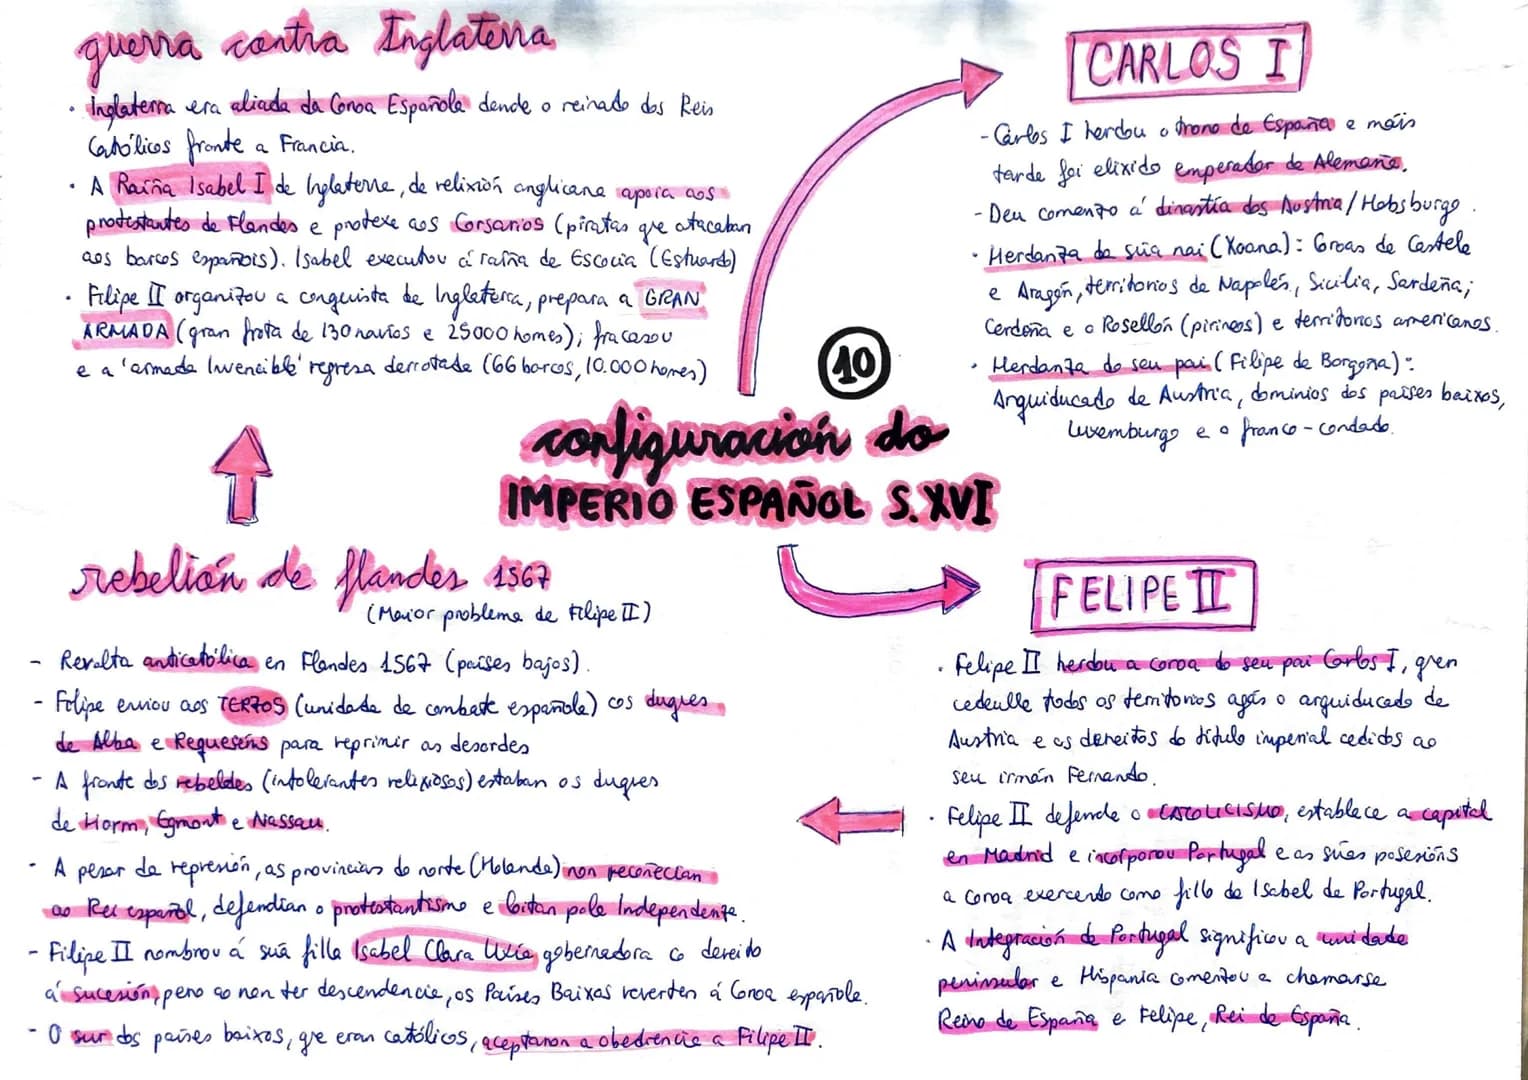 guerra contra Inglaterra
• Inglaterra era aliada da Coroa Española dende o reinado dos Reis
Católicos fronte a Francia.
• A Raíña Isabel I de Inglaterra, de relixión anglicana apoia aos
protestantes de Flandes e protexe aos Corsarios (piratas que atacaban
aos barcos españois). Isabel executou á raíña de Escocia (Estuardo)
• Filipe II organizou a conquista de Inglaterra, prepara a GRAN
ARMADA (gran frota de 130 navíos e 25000 homes); fracasou
e a 'armada Invencible' regresa derrotada (66 barcos, 10.000 homes)
CARLOS I
- Carlos I herdou o trono de España e máis
tarde foi elixido emperador de Alemaña.
- Deu comenzo á dinastía dos Austria/Habsburgo.
• Herdanza da súa nai (Xoana): Coroas de Castela
e Aragón, territorios de Napolés, Sicilia, Sardeña;
Cerdeña e o Rosellón (pirineos) e territorios americanos.
• Herdanza do seu pai (Filipe de Borgoña):
Arquiducado de Austria, dominios dos países baixos,
Luxemburgo e o franco-condado.
10
configuración do
IMPERIO ESPAÑOL S.XVI
rebelión de flandes 1567
(Maior problema de Filipe II)
- Revolta anticatólica en Flandes 1567 (países bajos).
- Felipe enviou aos TERZOS (unidade de combate española) cos duques
de Alba e Requeséns para reprimir as desordes
- A fronte dos rebeldes (intolerantes relixiosos) estaban os duques
de Horm, Egmont e Nassau.
- A pesar da represión, as provincias do norte (Holanda) non recoñecían
ao Rei español, defendían o protestantismo e loitan pola Independenza.
- Filipe II nombrou á súa filla Isabel Clara Uxía gobernadora co dereito
á sucesión, pero ao non ter descendencia, os Países Baixos reverten á Coroa española.
- O sur dos países baixos, que eran católicos, aceptaron a obediencia a Filipe II.
FELIPE II
• Felipe II herdou a coroa do seu pai Carlos I, quen
cedeulle todos os territorios agás o arquiducado de
Austria e os dereitos do título imperial cedidos ao
seu irmán Fernando.
• Felipe II defende o CATOLICISMO, establece a capital
en Madrid e incorporou Portugal e as súas posesións
a coroa exercendo como fillo de Isabel de Portugal.
• A Integración de Portugal significou a unidade
peninsular e Hispania comenzou a chamarse
Reino de España e Felipe, Rei de España.